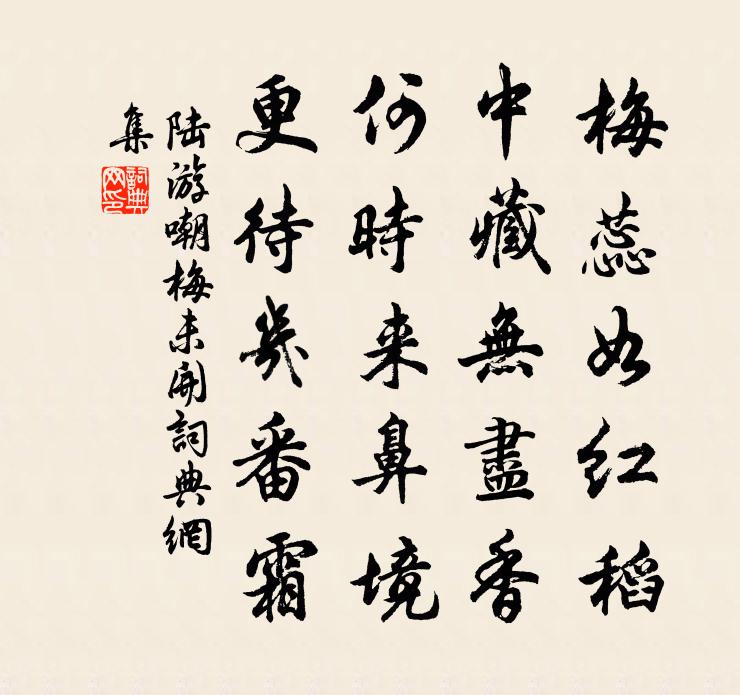 梅蕊如红稻
中藏無盡香
何時来鼻境
更待幾番霜
陆游嘲梅未開詞典網
集
詞典
网印